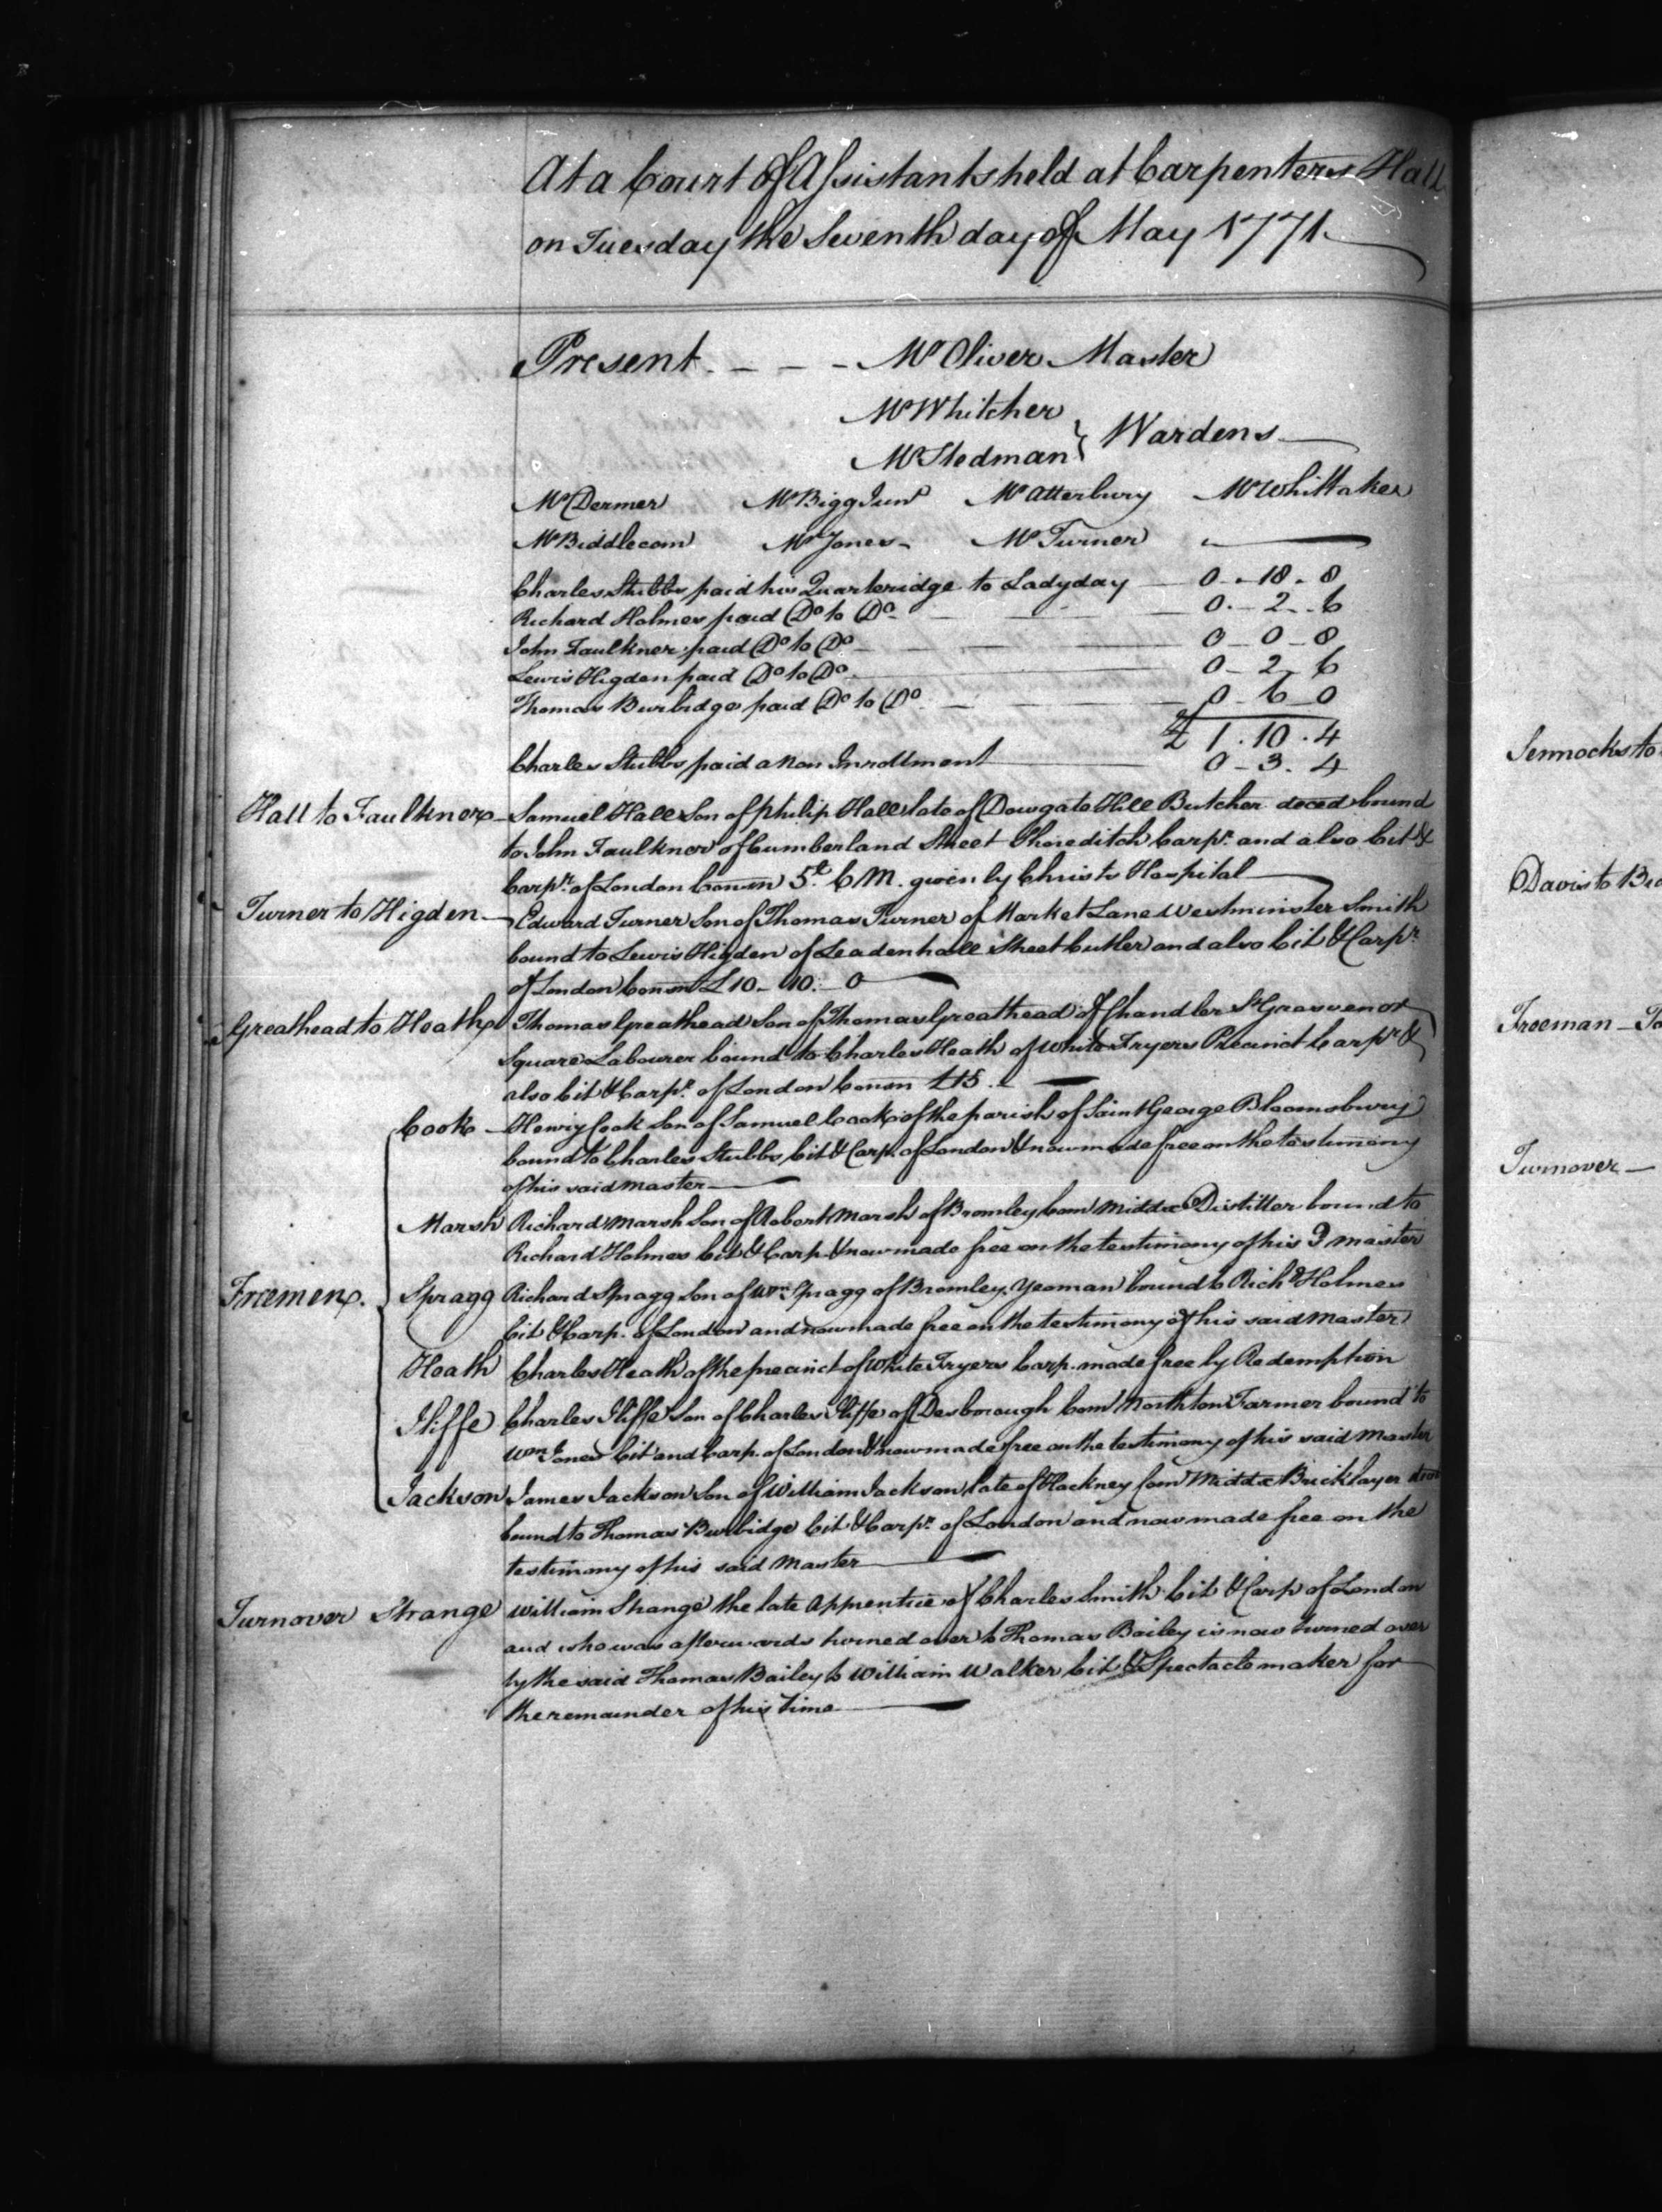 At a Court of Assistants held at Carpenters Hall
on Tuesday the Seventh day of May 1771
Present - - - Mr Oliver Master
Mr Whitcher
Mr Stedman } Wardens
Mr Dermer Mr Bigg Junr Mr Atterbury Mr Whittaker
Mr Biddlecom Mr Jones Mr Turner
Charles Stubbs paid his Quarteridge to Ladyday 0 - 18 - 8
Richard Holmes paid Do to Do 0 - 2 - 6
John Faulkner paid Do to Do 0 - 0 - 8
Lewis Higden paid Do to Do 0 - 2 - 6
Thomas Burbidge paid Do to Do 0 - 6 - 0
£ 1 . 10 . 4
Charles Stubbs paid a non Inrollment 0 - 3 . 4
Hall to Faulkner Samuel Hall Son of Philip Hall late of Dowgate Hill Butcher deced bound
to John Faulkner of Cumberland Street Shoreditch Carpr. and also Cit &
Carpr. of London Conson 5£ C M. given by Christs Hospital
Turner to Higden Edward Turner Son of Thomas Turner of Market Lane Westminster Smith
bound to Lewis Higden of Leadenhall Street Cutler and also Cit & Carpr
of London Conson £ 10 - 10 - 0
Greathead to Heath Thomas Greathead Son of Thomas Greathead of Chandler St Grosvenor
Square Labourer bound to Charles Heath of White Fryers Precinct Carpr &
also Cit & Carpr. of London Conson £15
Cook Henry Cook Son of Samuel Cook of the parish of Saint George Bloomsbury
bound to Charles Stubbs, Cit & Carp. of London & now made free on the testimony
of his said Master
Marsh Richard Marsh Son of Robert Marsh of Bromley Com Middx Distiller bound to
Richard Holmes Cit & Carp. & now made free on the testimony of his Master
Freemen. Spragg Richard Spragg Son of Wm. Spragg of Bromley, Yeoman bound to Richd Holmes
Cit & Carp. of London and now made free on the testimony of his said Master
Heath Charles Heath of the precinct of White Fryers Carp. made free by Redemption
Iliffe Charles Iliffe Son of Charles Iliffe of Desborough Com Northton Farmer bound to
Wm. Jones Cit and Carp. of London & now made free on the testimony of his said Master
Jackson James Jackson Son of William Jackson late of Hackney Com Middx Bricklayer
bound to Thomas Burbidge Cit & Carpr. of London and now made free on the
testimony of his said Master
Turnover Strange William Strange the late Apprentice of Charles Smith Cit & Carp of London
and who was afterwards turned over to Thomas Bailey is now turned over
by the said Thomas Bailey to William Walker Cit & Spectaclemaker for
the remainder of his time
Sennocks to
Davis to
Freeman
Turnover